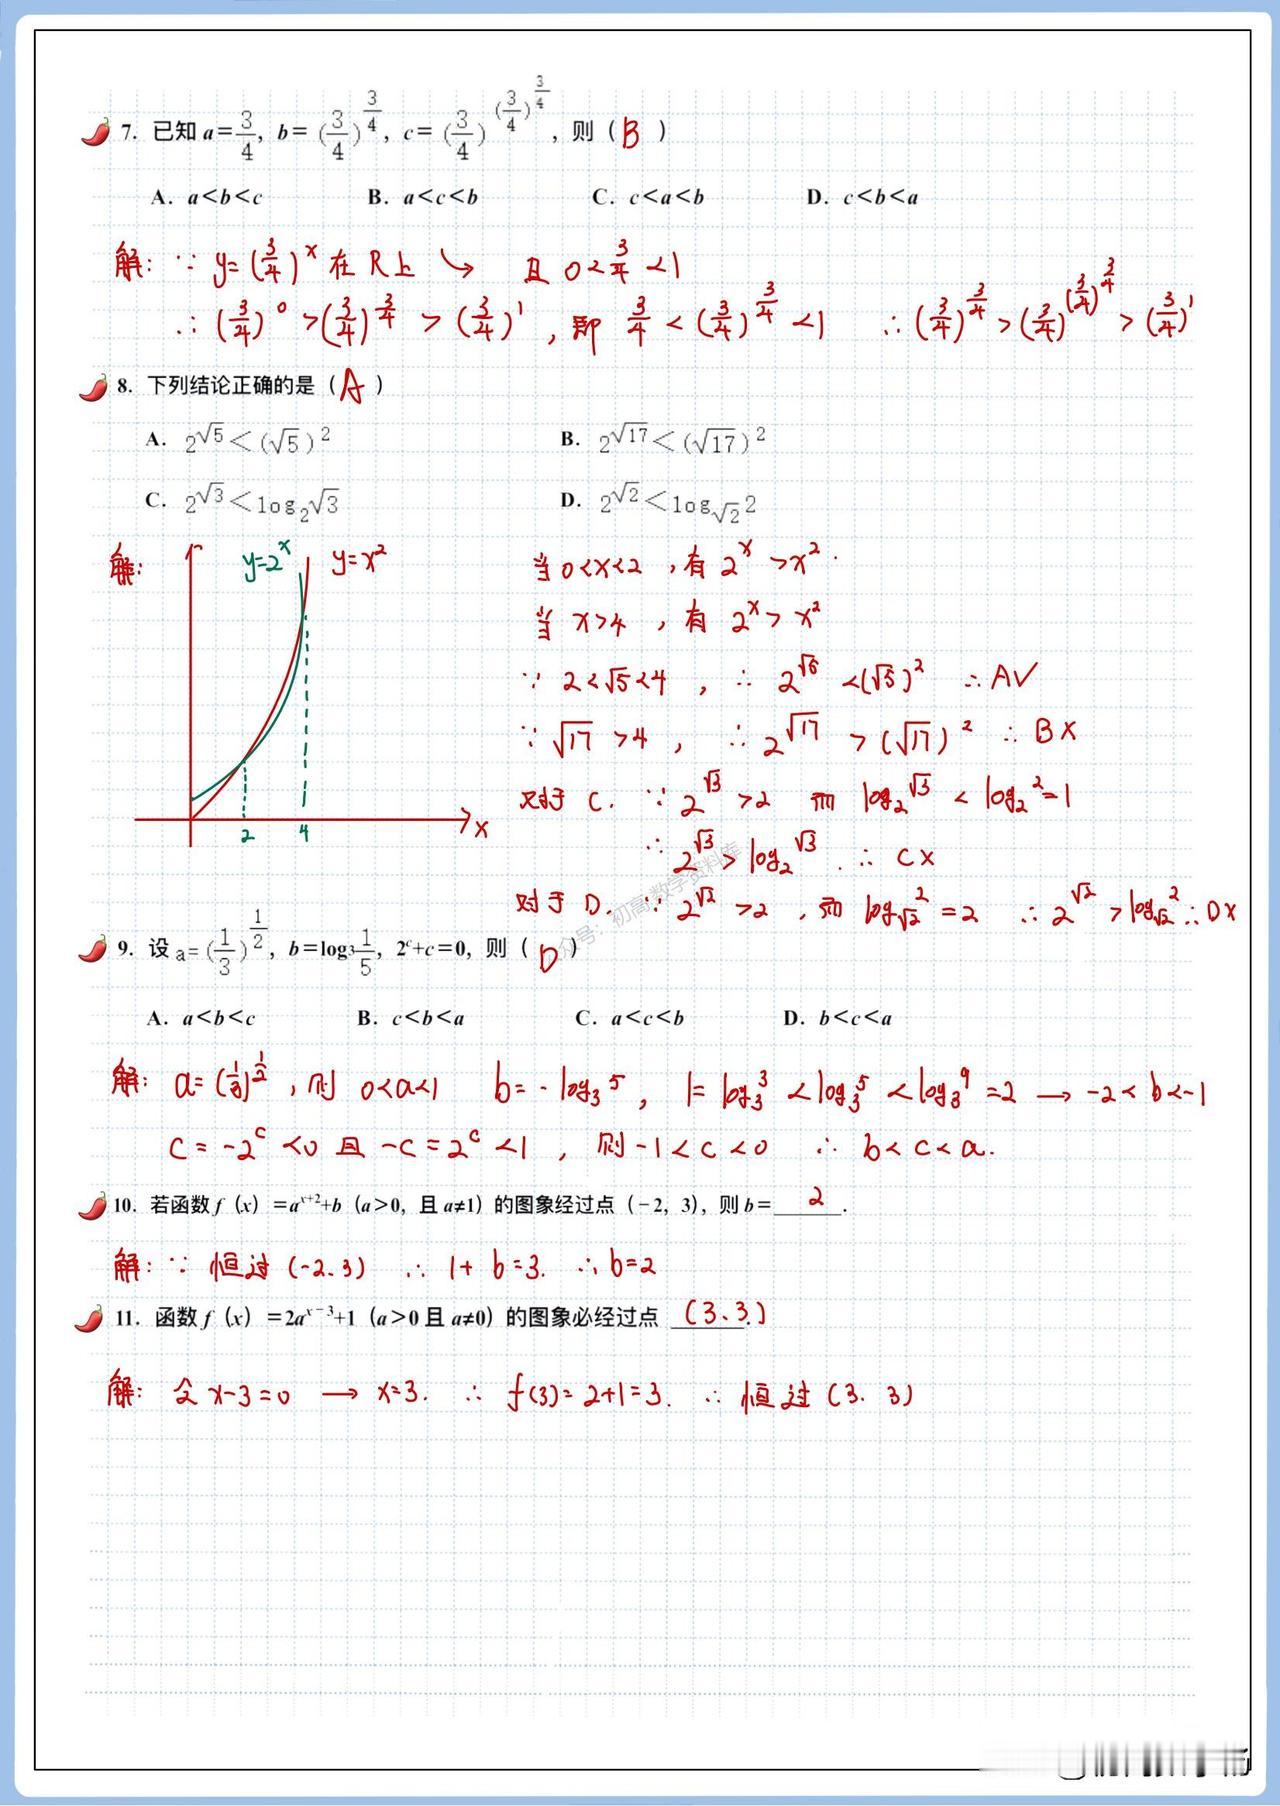 7. 已知 a=3/4, b=(3/4)^(3/4), c=(3/4)^((3/4)^(3/4)), 则( B )
A. a<b<c B. a<c<b C. c<a<b D. c<b<a
解: ∵ y=(3/4)^x 在 R 上 ↘ 且 0<3/4<1
∴ (3/4)^0 > (3/4)^(3/4) > (3/4)^1, 即 3/4 < (3/4)^(3/4) < 1 ∴ (3/4)^(3/4) > (3/4)^((3/4)^(3/4)) > (3/4)^1
8. 下列结论正确的是( A )
A. 2^√5<(√5)^2 B. 2^√17<(√17)^2
C. 2^√3<log₂√3 D. 2^√2<log_√2 2
解: y=2^x y=x^2
当 0<x<2, 有 2^x>x^2.
当 x>4, 有 2^x>x^2
∵ 2<√5<4, ∴ 2^√5<(√5)^2 ∴ A√
∵ √17>4, ∴ 2^√17>(√17)^2 ∴ B×
对于 C. ∵ 2^√3>2 而 log₂√3<log₂2=1
∴ 2^√3>log₂√3. ∴ C×
对于 D. ∵ 2^√2>2, 而 log_√2 2=2 ∴ 2^√2>log_√2 2 ∴ D×
2 4 x
公众号:初高数学资料库
9. 设 a=(1/3)^(1/2), b=log₃1/5, 2^c+c=0, 则( D )
A. a<b<c B. c<b<a C. a<c<b D. b<c<a
解: a=(1/3)^(1/2), 则 0<a<1 b=-log₃5, 1=log₃3<log₃5<log₃9=2 → -2<b<-1
c=-2^c<0 且 -c=2^c<1, 则 -1<c<0 ∴ b<c<a.
10. 若函数 f(x)=a^(x+2)+b (a>0, 且 a≠1) 的图象经过点 (-2, 3), 则 b= 2 .
解: ∵ 恒过 (-2.3) ∴ 1+b=3. ∴ b=2
11. 函数 f(x)=2a^(x-3)+1 (a>0 且 a≠0) 的图象必经过点 (3.3) .
解: 令 x-3=0 → x=3. ∴ f(3)=2+1=3. ∴ 恒过 (3.3)